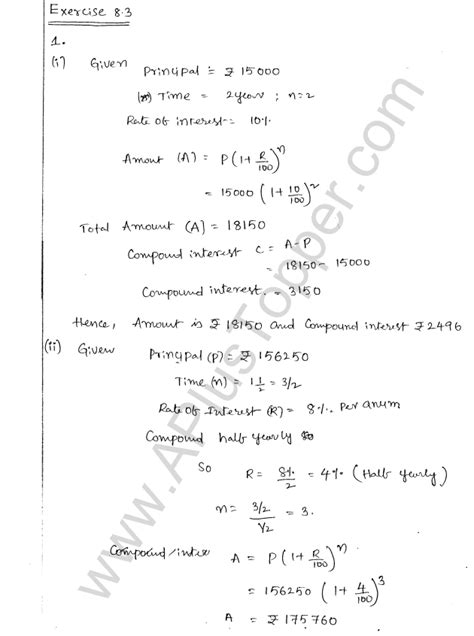 Exercise 8.3
1.
(i) Given Principal = ₹ 15000
Time = 2 year ; n=2
Rate of interest = 10%
Amount (A) = P(1+R/100)^n
= 15000 (1+10/100)^2
Total Amount (A) = 18150
Compound interest C = A-P
= 18150 - 15000
Compound interest = 3150
Hence, Amount is ₹ 18150 and Compound interest ₹ 2496
(ii) Given Principal (P) = ₹ 156250
Time (n) = 1 1/2 = 3/2
Rate of Interest (R) = 8% Per anum
Compound half yearly
So R = 8%/2 = 4% (Half yearly)
n = (3/2)/(1/2) = 3.
Compound A = P(1+R/100)^n
= 156250 (1+4/100)^3
A = ₹ 175760
www.APlusTopper.com